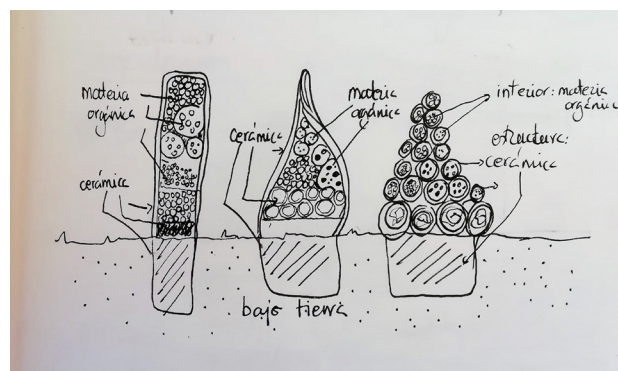 materia
orgánica
cerámica
cerámica
materia
orgánica
interior: materia
orgánica
estructura:
cerámica
bajo tierra